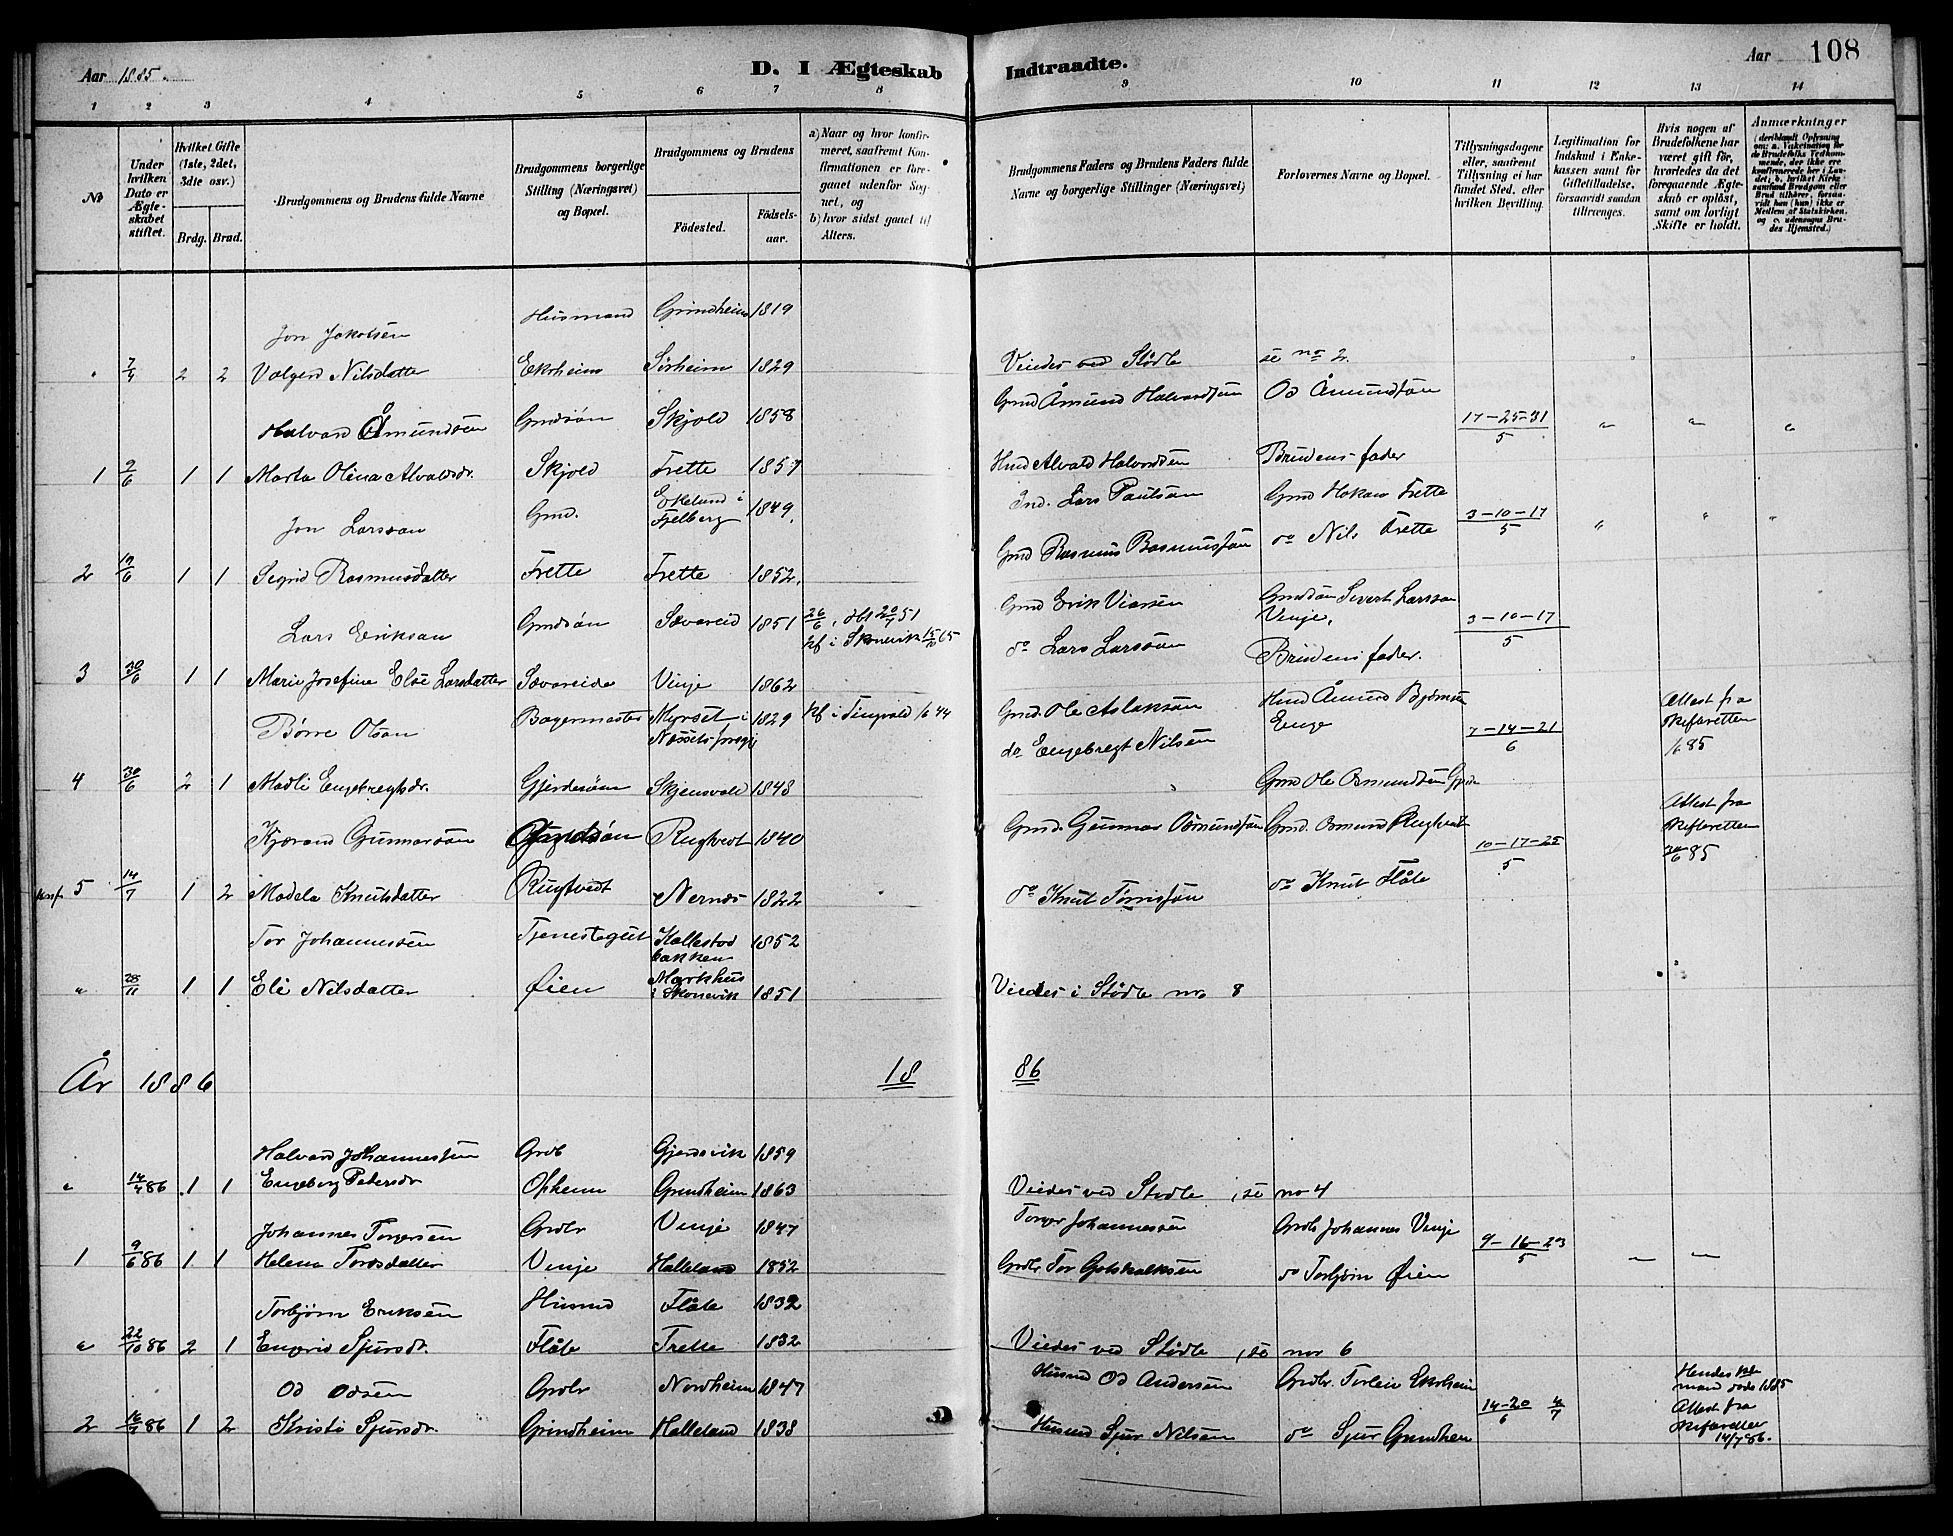 Aar 1885.
D. I Ægteskab Indtraadte.
Aar 108
1 2 3 4 5 6 7 8 9 10 11 12 13 14
No
Under hvilken Dato er Ægteskabet stiftet.
Hvilket Gifte (1ste, 2det, 3die osv.)
Brdg. Brud.
Brudgommens og Brudens fulde Navne
Brudgommens borgerlige Stilling (Næringsvei) og Bopæl.
Brudgommens og Brudens
Fødested. Fødselsaar.
a) Naar og hvor konfirmeret, saafremt Konfirmationen er foregaaet udenfor Sognet, og
b) hvor sidst gaaet til Alters.
Brudgommens Faders og Brudens Faders fulde Navne og borgerlige Stillinger (Næringsvei)
Forlovernes Navne og Bopæl.
Tillysningsdagene eller, saafremt Tillysning ei har fundet Sted, efter hvilken Bevilling.
Legitimation for Indskud i Enkekassen samt for Giftetilladelse, forsaavidt saadan tiltrænges.
Hvis nogen af Brudefolkene har været gift før, hvorledes da det foregaaende Ægteskab er opløst, samt om lovligt Skifte er holdt.
Anmærkninger
(deriblandt Oplysning om: a. Vakcination for de Brudefolks Vedkommende, der ikke ere konfirmerede her i Landet, b. hvilket Kirkesamfund Brudgom eller Brud tilhører, forsaavidt han (hun) ikke er Medlem af Statskirken, og c. udensogns Brudes Hjemsted.)
Jon Jakobsen Husmand Grindheim 1819
" 7/4 2 2 Valgerd Nilsdatte Ekrheim Sørheim 1829 Viedes ved Stødle se no 2.
Halvard Åmundsen Gmdsøn Skjold 1858 Gmd Åmund Halvardsøn Od Åmundsøn 17-25-31/5 " " "
1 2/6 1 1 Marta Olina Alvaldsdr. Skjold Frette 1857 Hmd Alvald Halvordsen Brudens fader
Jon Larsson Gmd. Ekelund i Fjelberg 1849. Ind. Lars Paulsøn Gmd Hakon Frette 3-10-17/5 " " "
2 19/6 1 1 Sigrid Rasmusdatter Frette Frette 1852. Gmd Rasmus Rasmussøn do Nils Frette
Lars Eriksøn Gmdsøn Sævareid 1851 26/6, dbt 20/7 51 kf i Skonevik 15/10 65 Gmd Erik Viarsen Gmdsøn Sivert Larsson Vinje, 3-10-17/5
3 30/6 1 1 Marie Josefine Else Larsdatter Sævareide Vinje 1862 do Lars Larssøn Brudens fader.
Børre Olsøn Bagermester Myrset i Næssets præstgj 1829 kf i Tingvold 1/6 44 Gmd. Ole Aslaksøn Hmd Åmund Enge 7-14-21/6 Attest fra skifteretten 1/6 85
4 30/6 2 1 Madli Engebregtsdr. Gjerdesøm Skjensvold 1848 do Engebregt Nilsen Gmd Ole Osmundsen
Kjærand Gunnarsøn Gmdsøn Rugtvedt 1840 Gmd. Gunnar Osmundsøn Gmd. Osmund Rugtvedt 10-17-25/5 Attest fra skifteretten 30/6 85
5 14/7 1 2 Madela Knutsdatter Rugtvedt Nernæs 1822 do Knut Tørrissøn do Knut Flåte
Tor Johannessen Tjenestegut Kallestad bakken 1852
" 28/11 1 1 Eli Nilsdatter Øien Markhus i Skonevik 1851 Viedes i Stødle no 8
År 1886 18 86
Halvard Johannessen Grdb Gjerdsvik 1859
" 14/4 86 1 1 Engeborg Petersdr Opheim Grindheim 1863 Viedes ved Stødle, se no 4
Johannes Torgersen Grdbr Vinje 1847 Torger Johannessen Grdbr Johannes Vinje 9-16-23/5
1 9/6 86 1 1 Helena Torsdatter Vinje Halleland 1852 Grdbr Tor Gotskalksen do Torbjørn Øien
Torbjørn Eriksen Husmd Flåte 1832
" 22/10 86 2 1 Engrid Sjursdr. Flåte Frette 1832 Viedes ved Stødle, se no 6
Od Odsen Grdbr Nordheim 1847 Husmd Od Andersen Grdbr. Torlein Ekrheim 14-20/6 4/7 Hendes mand døde 1885 Attest fra skifteretten 14/7 86.
2 16/7 86 1 2 Kristi Sjursdr. Grindheim Halleland 1838 Husmd Sjur Nilsen do Sjur Grindheim